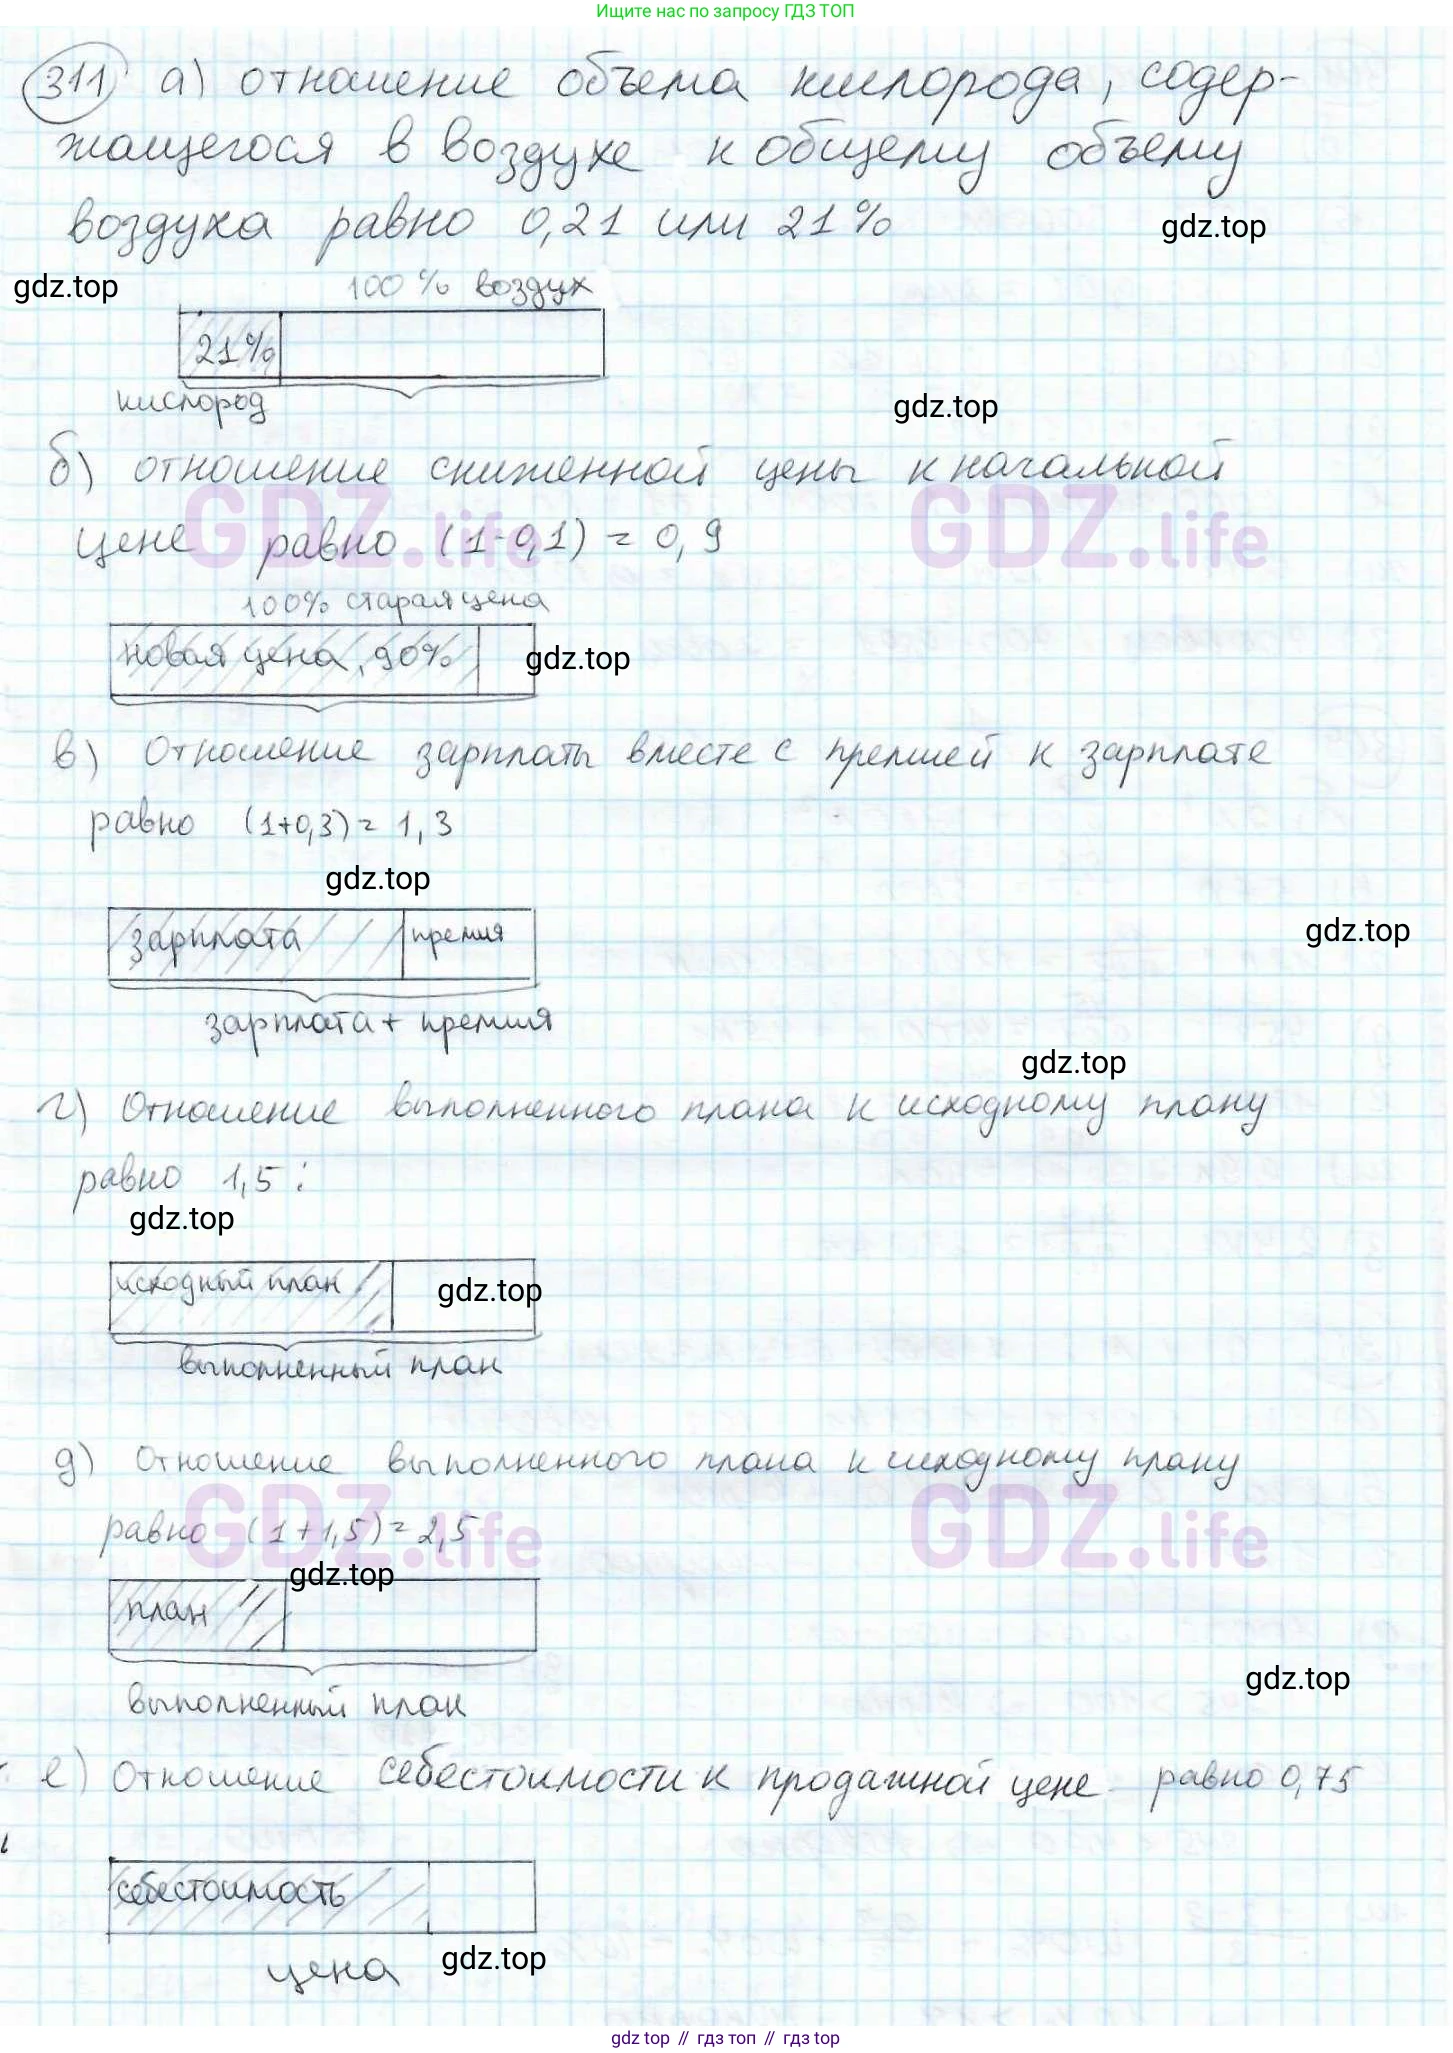 Ищите нас по запросу ГДЗ ТОП
311 а) отношение объема кислорода, содер-
жащегося в воздухе к общему объему
воздуха равно 0,21 или 21%
gdz.top
gdz.top
100% воздух
21%
кислород
gdz.top
б) отношение сниженной цены к начальной
цене равно (1-0,1) = 0,9
GDZ.life
GDZ.life
100% старая цена
новая цена, 90%
gdz.top
в) Отношение зарплаты вместе с премией к зарплате
равно (1+0,3) = 1,3
gdz.top
зарплата премия
gdz.top
зарплата + премия
gdz.top
г) Отношение выполненного плана к исходному плану
равно 1,5 :
gdz.top
исходный план
gdz.top
выполненный план
д) Отношение выполненного плана к исходному плану
равно (1+1,5) = 2,5
GDZ.life
GDZ.life
gdz.top
план
выполненный план
gdz.top
е) Отношение себестоимости к продажной цене равно 0,75
себестоимость
цена
gdz.top
gdz top // гдз топ // гдз top